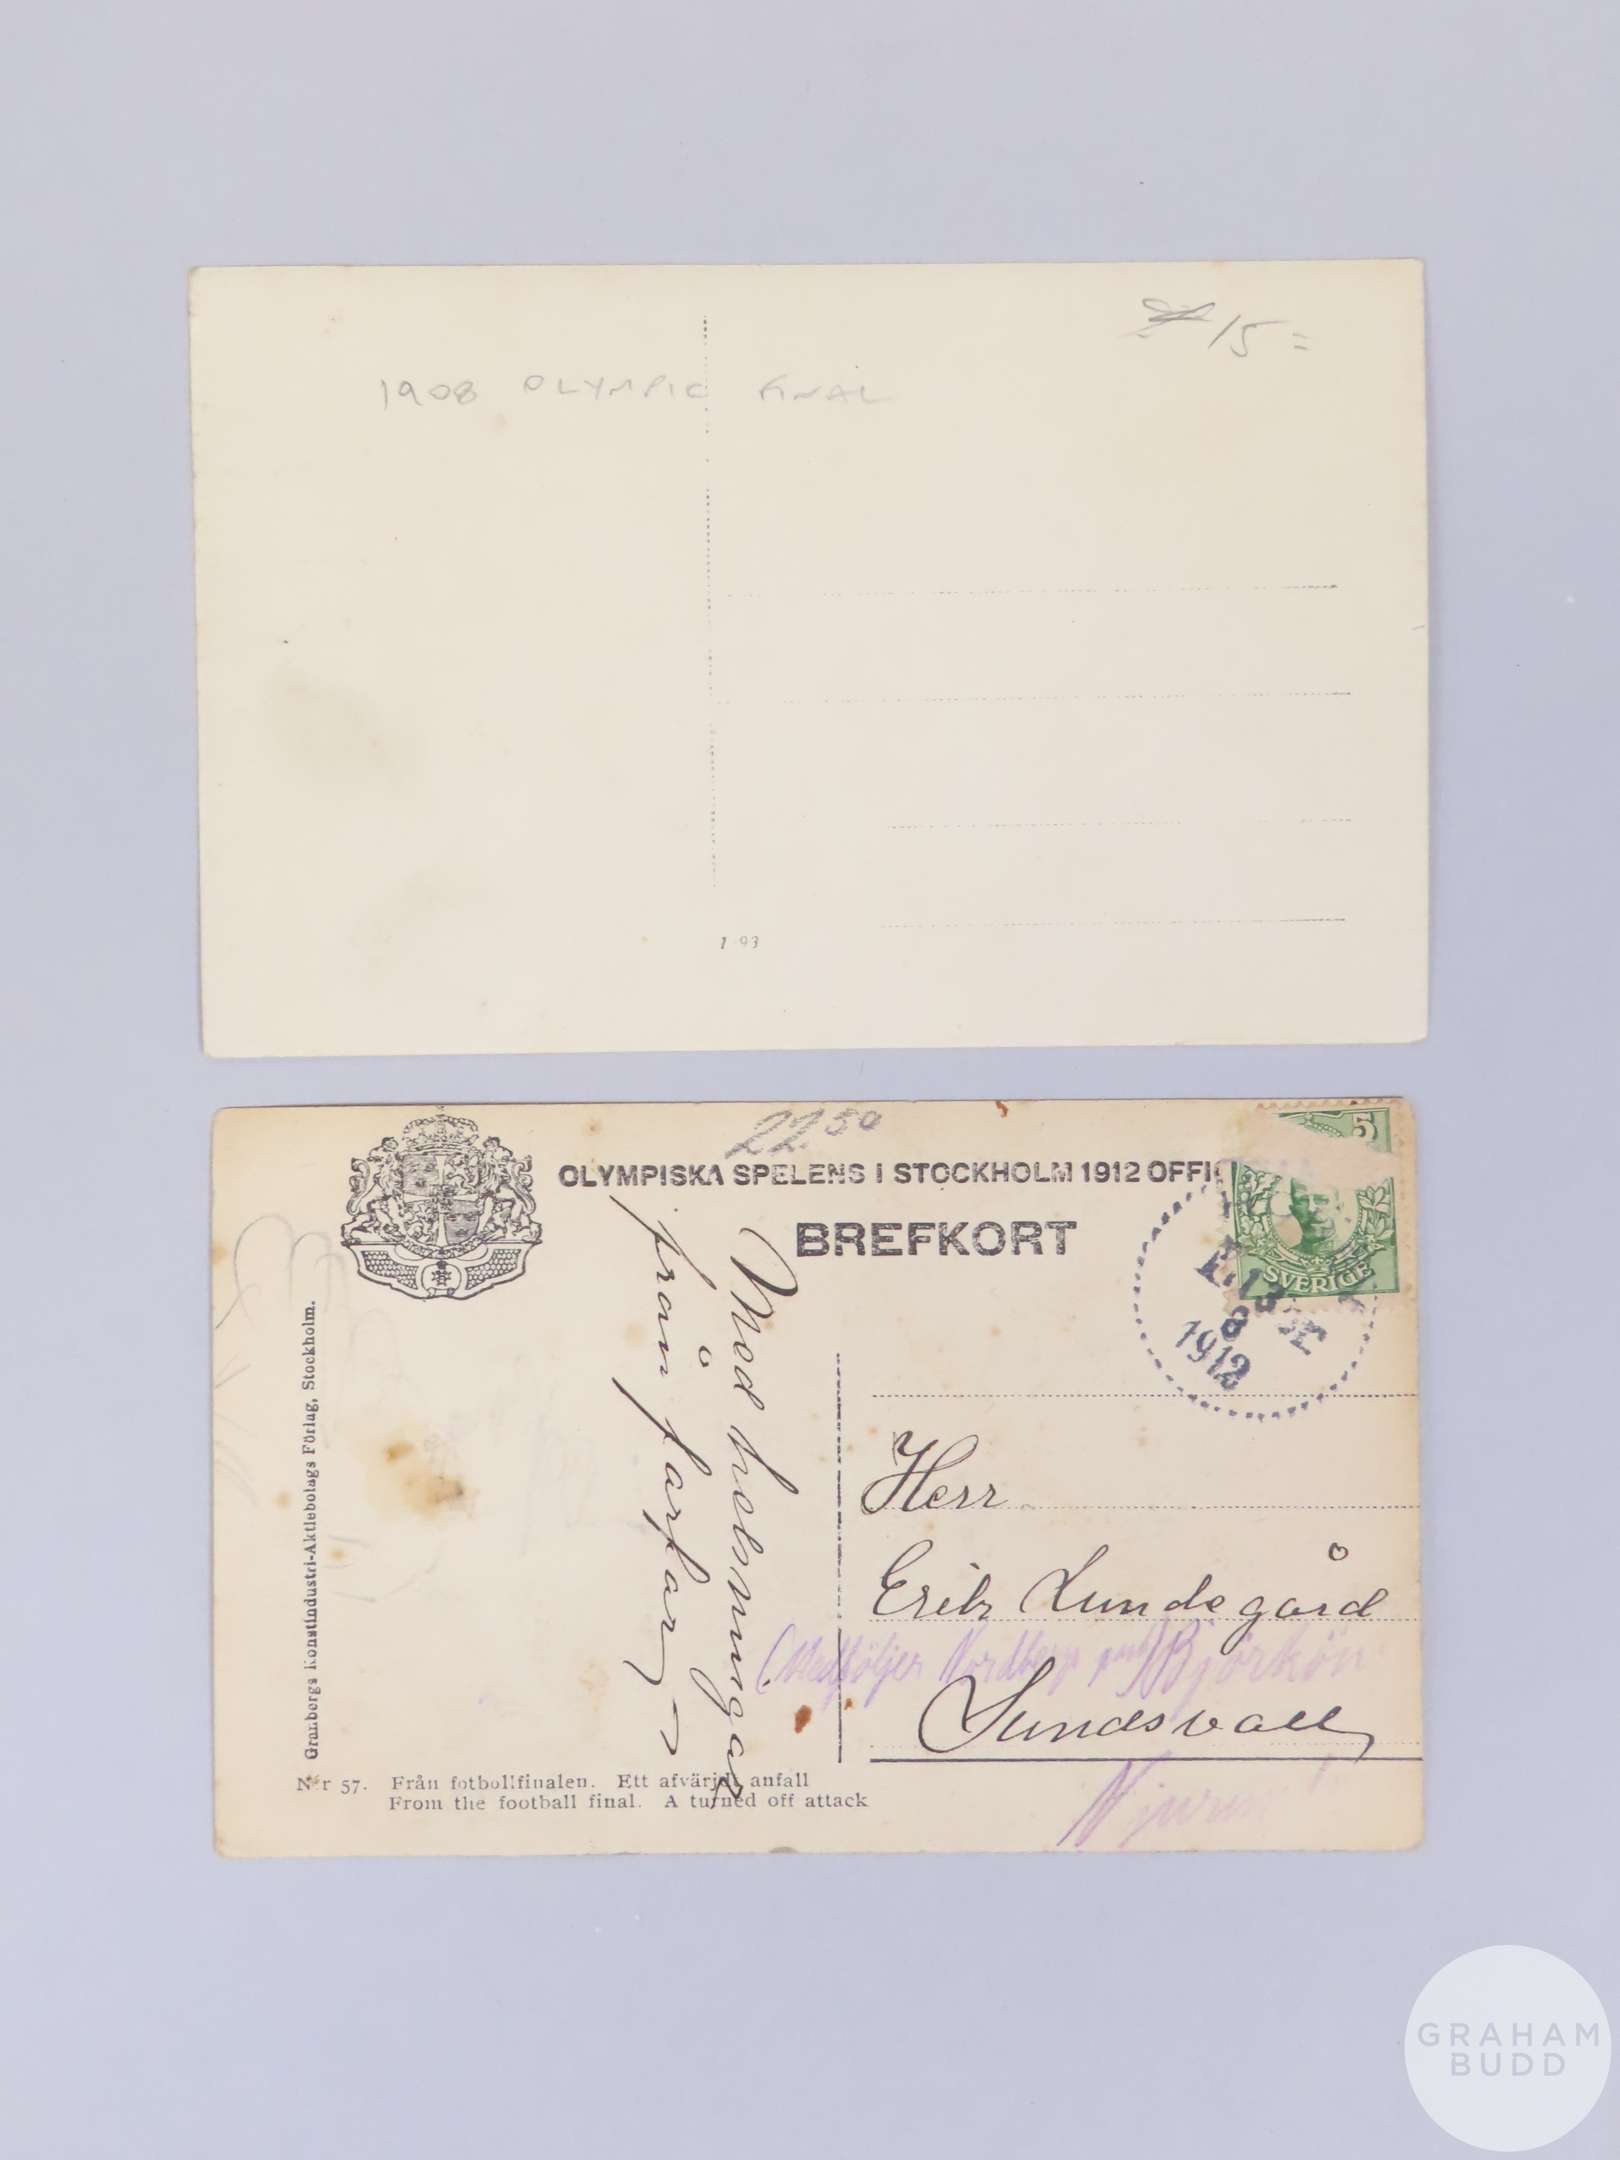 15=
1908 OLYMPIC FINAL
1 93
22.50
OLYMPISKA SPELENS I STOCKHOLM 1912 OFFIC
BREFKORT
5
SVERIGE
8
1912
Med helsningar
från farfar
Herr
Erik Lundegård
(Medföljer Nordberg Björkön
Sundsvall
Granbergs Konstindustri-Aktiebolags Förlag, Stockholm.
N:r 57. Från fotbollfinalen. Ett afvärjdt anfall
From the football final. A turned off attack
GRAHAM
BUDD